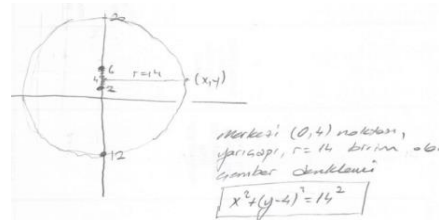 6
4
r=14
(x,y)
2
12
merkezi (0,4) noktası,
yarıçapı, r=14 birim
çember denklemi
x²+(y-4)²=14²